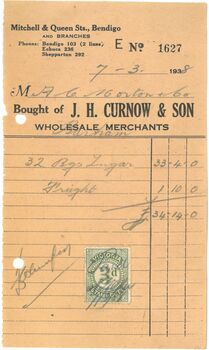 Mitchell & Queen Sts., Bendigo
AND BRANCHES
Phones: Bendigo 103 (2 lines)
Echuca 236
Shepparton 292
E No 1627
7-3-1938
M A. C. Morton & Co
Bought of J. H. CURNOW & SON
WHOLESALE MERCHANTS
32 Bgs Sugar 33-4-0
Freight 1 10 0
£ 34-14-0
VICTORIA